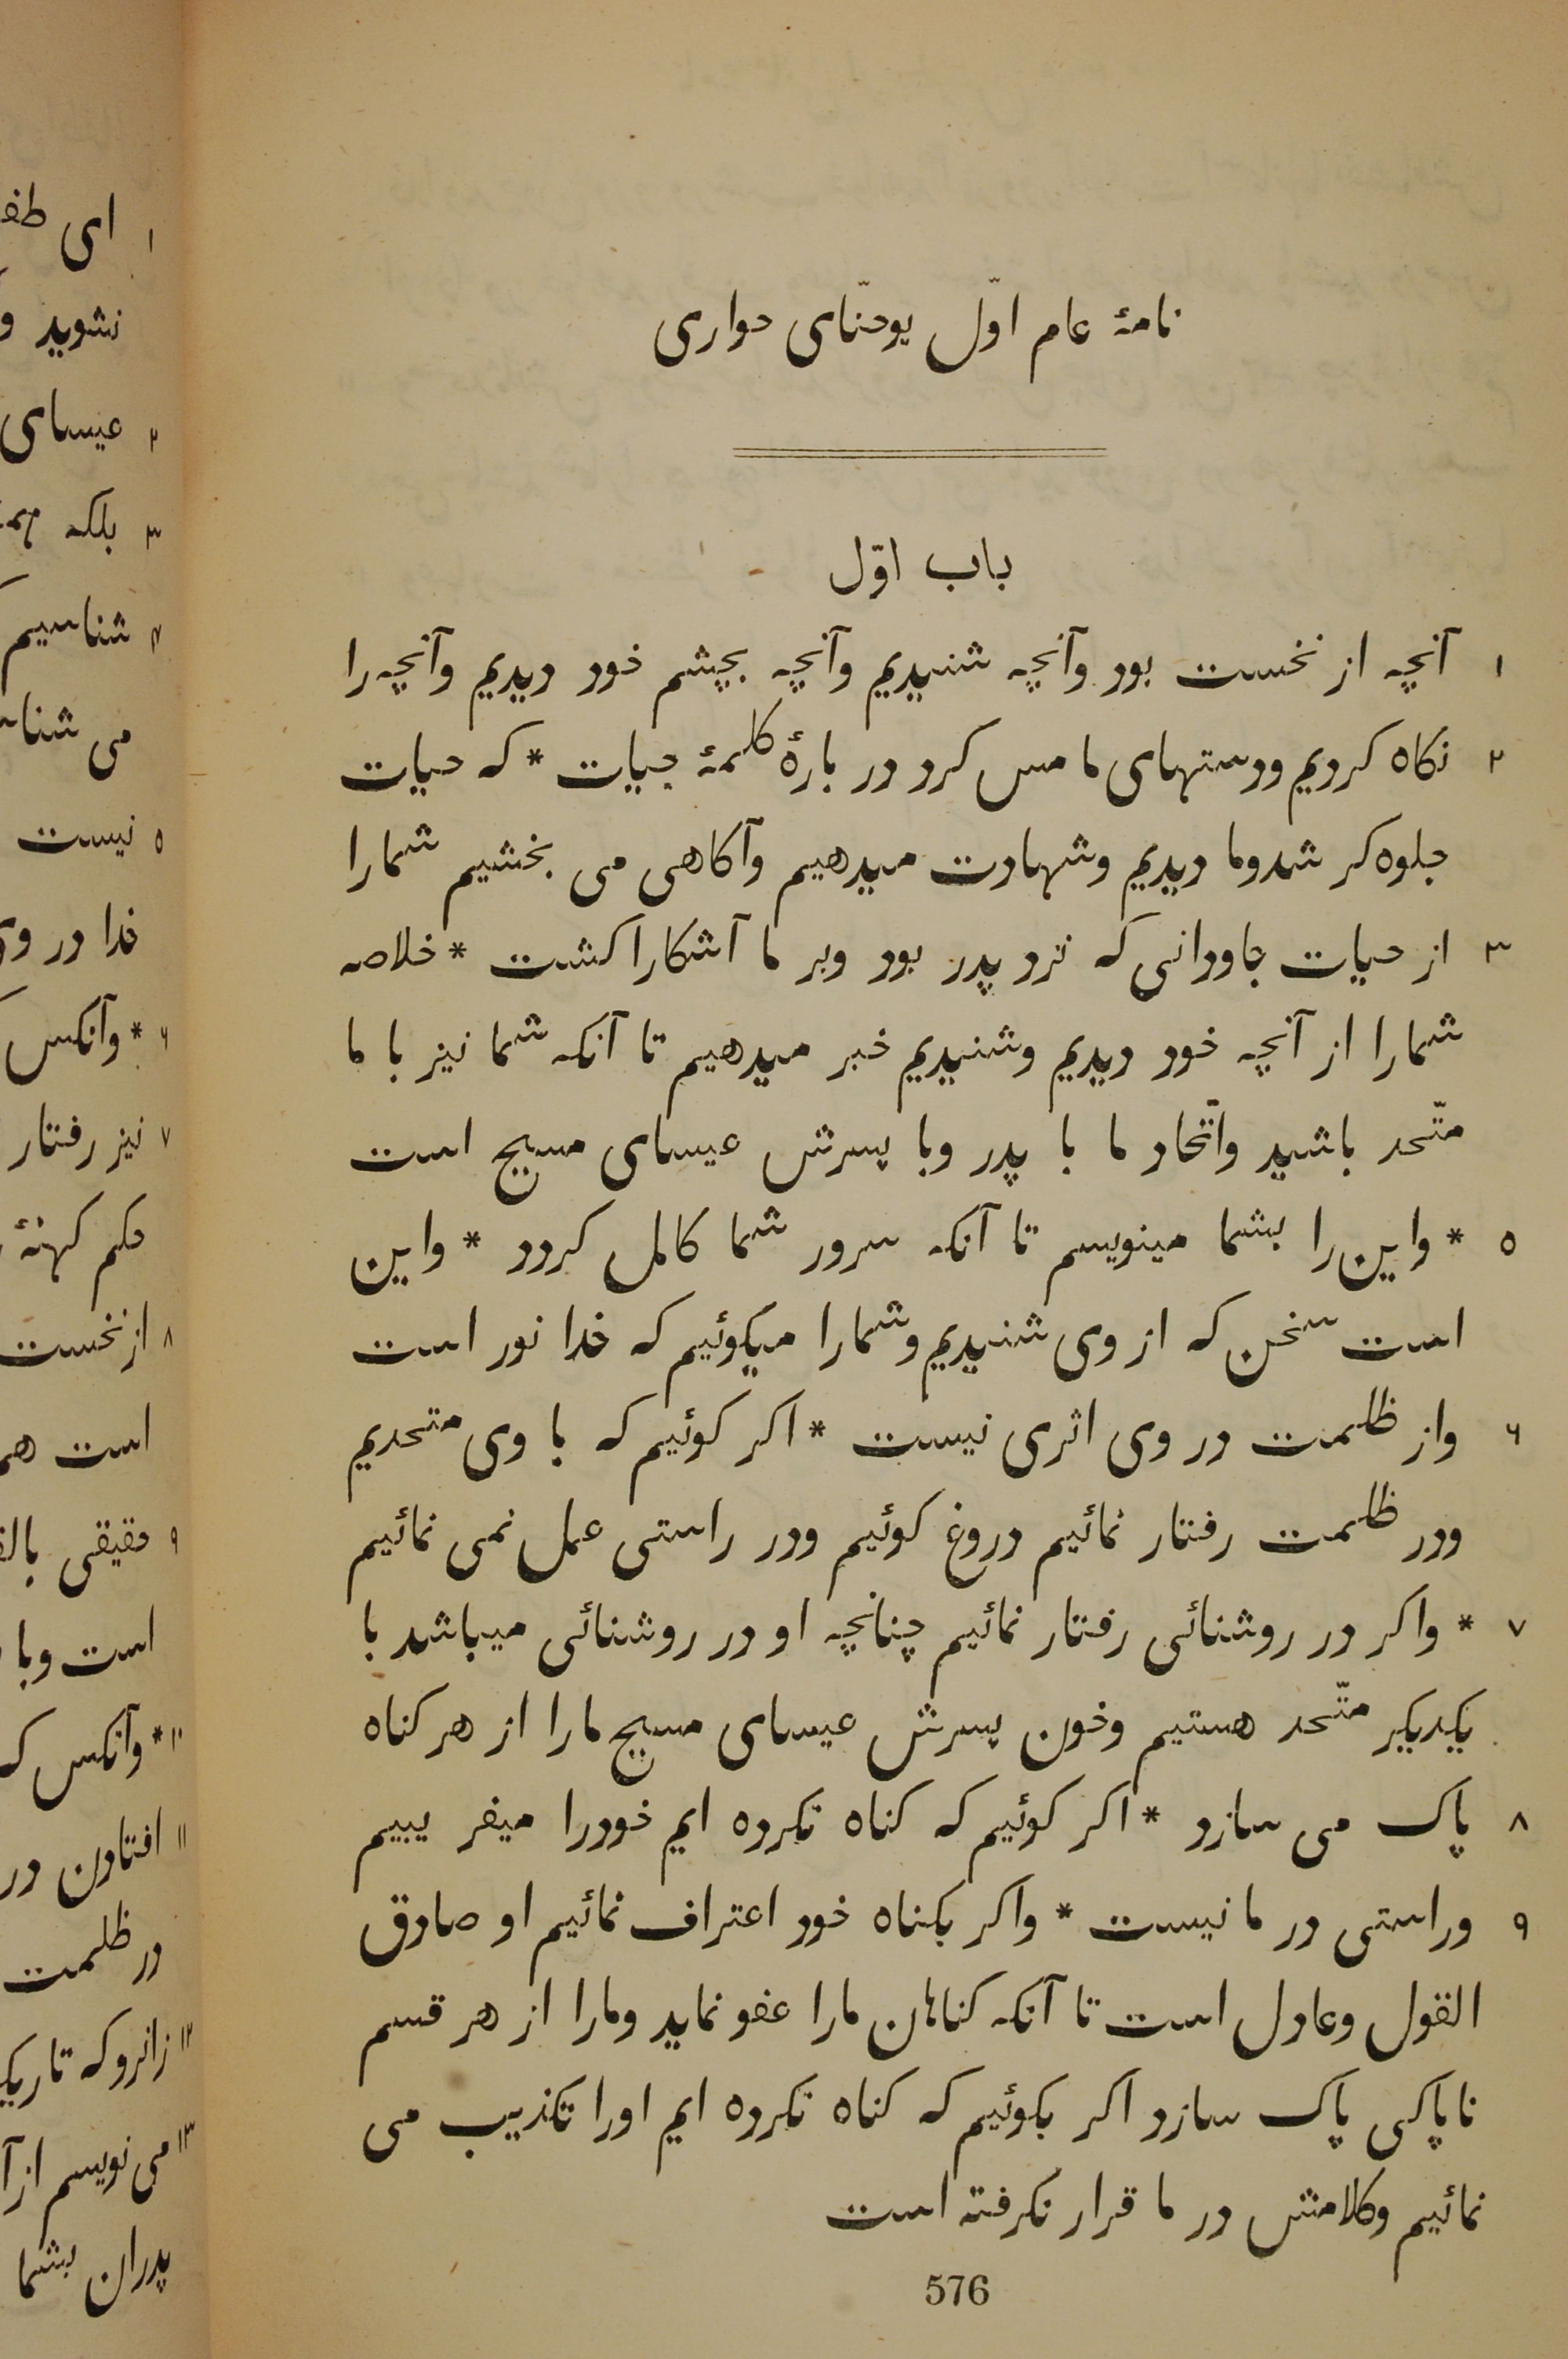 نامهٔ عام اوّل یوحنّای حواری
باب اوّل
۱ آنچه از نخست بود وآنچه شنیدیم وآنچه بچشم خود دیدیم وآنچه را
۲ نکاه کردیم ودستهای ما مس کرد در بارهٔ کلمهٔ حیات * که حیات
جلوه کر شد وما دیدیم وشهادت میدهیم وآکاهی می بخشیم شما را
۳ از حیات جاودانی که نزد پدر بود وبر ما آشکارا کشت * خلاصه
شما را از آنچه خود دیدیم وشنیدیم خبر میدهیم تا آنکه شما نیز با ما
متّحد باشید واتّحاد ما با پدر وبا پسرش عیسای مسیح است
۵ * واین را بشما مینویسم تا آنکه سرور شما کامل کردد * واین
است سخن که از وی شنیدیم وشما را میکوئیم که خدا نور است
۶ واز ظلمت در وی اثری نیست * اکر کوئیم که با وی متحدیم
ودر ظلمت رفتار نمائیم دروغ کوئیم ودر راستی عمل نمی نمائیم
۷ * واکر در روشنائی رفتار نمائیم چنانچه او در روشنائی میباشد با
یکدیکر متّحد هستیم وخون پسرش عیسای مسیح ما را از هر کناه
۸ پاک می سازد * اکر کوئیم که کناه نکرده ایم خود را میفر یبیم
۹ وراستی در ما نیست * واکر بکناه خود اعتراف نمائیم او صادق
القول وعادل است تا آنکه کناهان ما را عفو نماید وما را از هر قسم
ناپاکی پاک سازد اکر بکوئیم که کناه نکرده ایم اورا تکذیب می
نمائیم وکلامش در ما قرار نکرفته است
576
۱ ای
نشوید
۲ عیسای
۳ بلکه
۴ شناسیم
می
۵ نیست
خدا در
۶ * وآنکس
۷ نیز رفتار
حکم کهنهٔ
۸ از نخست
است
۹ حقیقی
است وبا
۱۰ * وآنکس
۱۱ افتادن در
در ظلمت
۱۲ زانرو که
۱۳ می نویسم از
پدران بشما